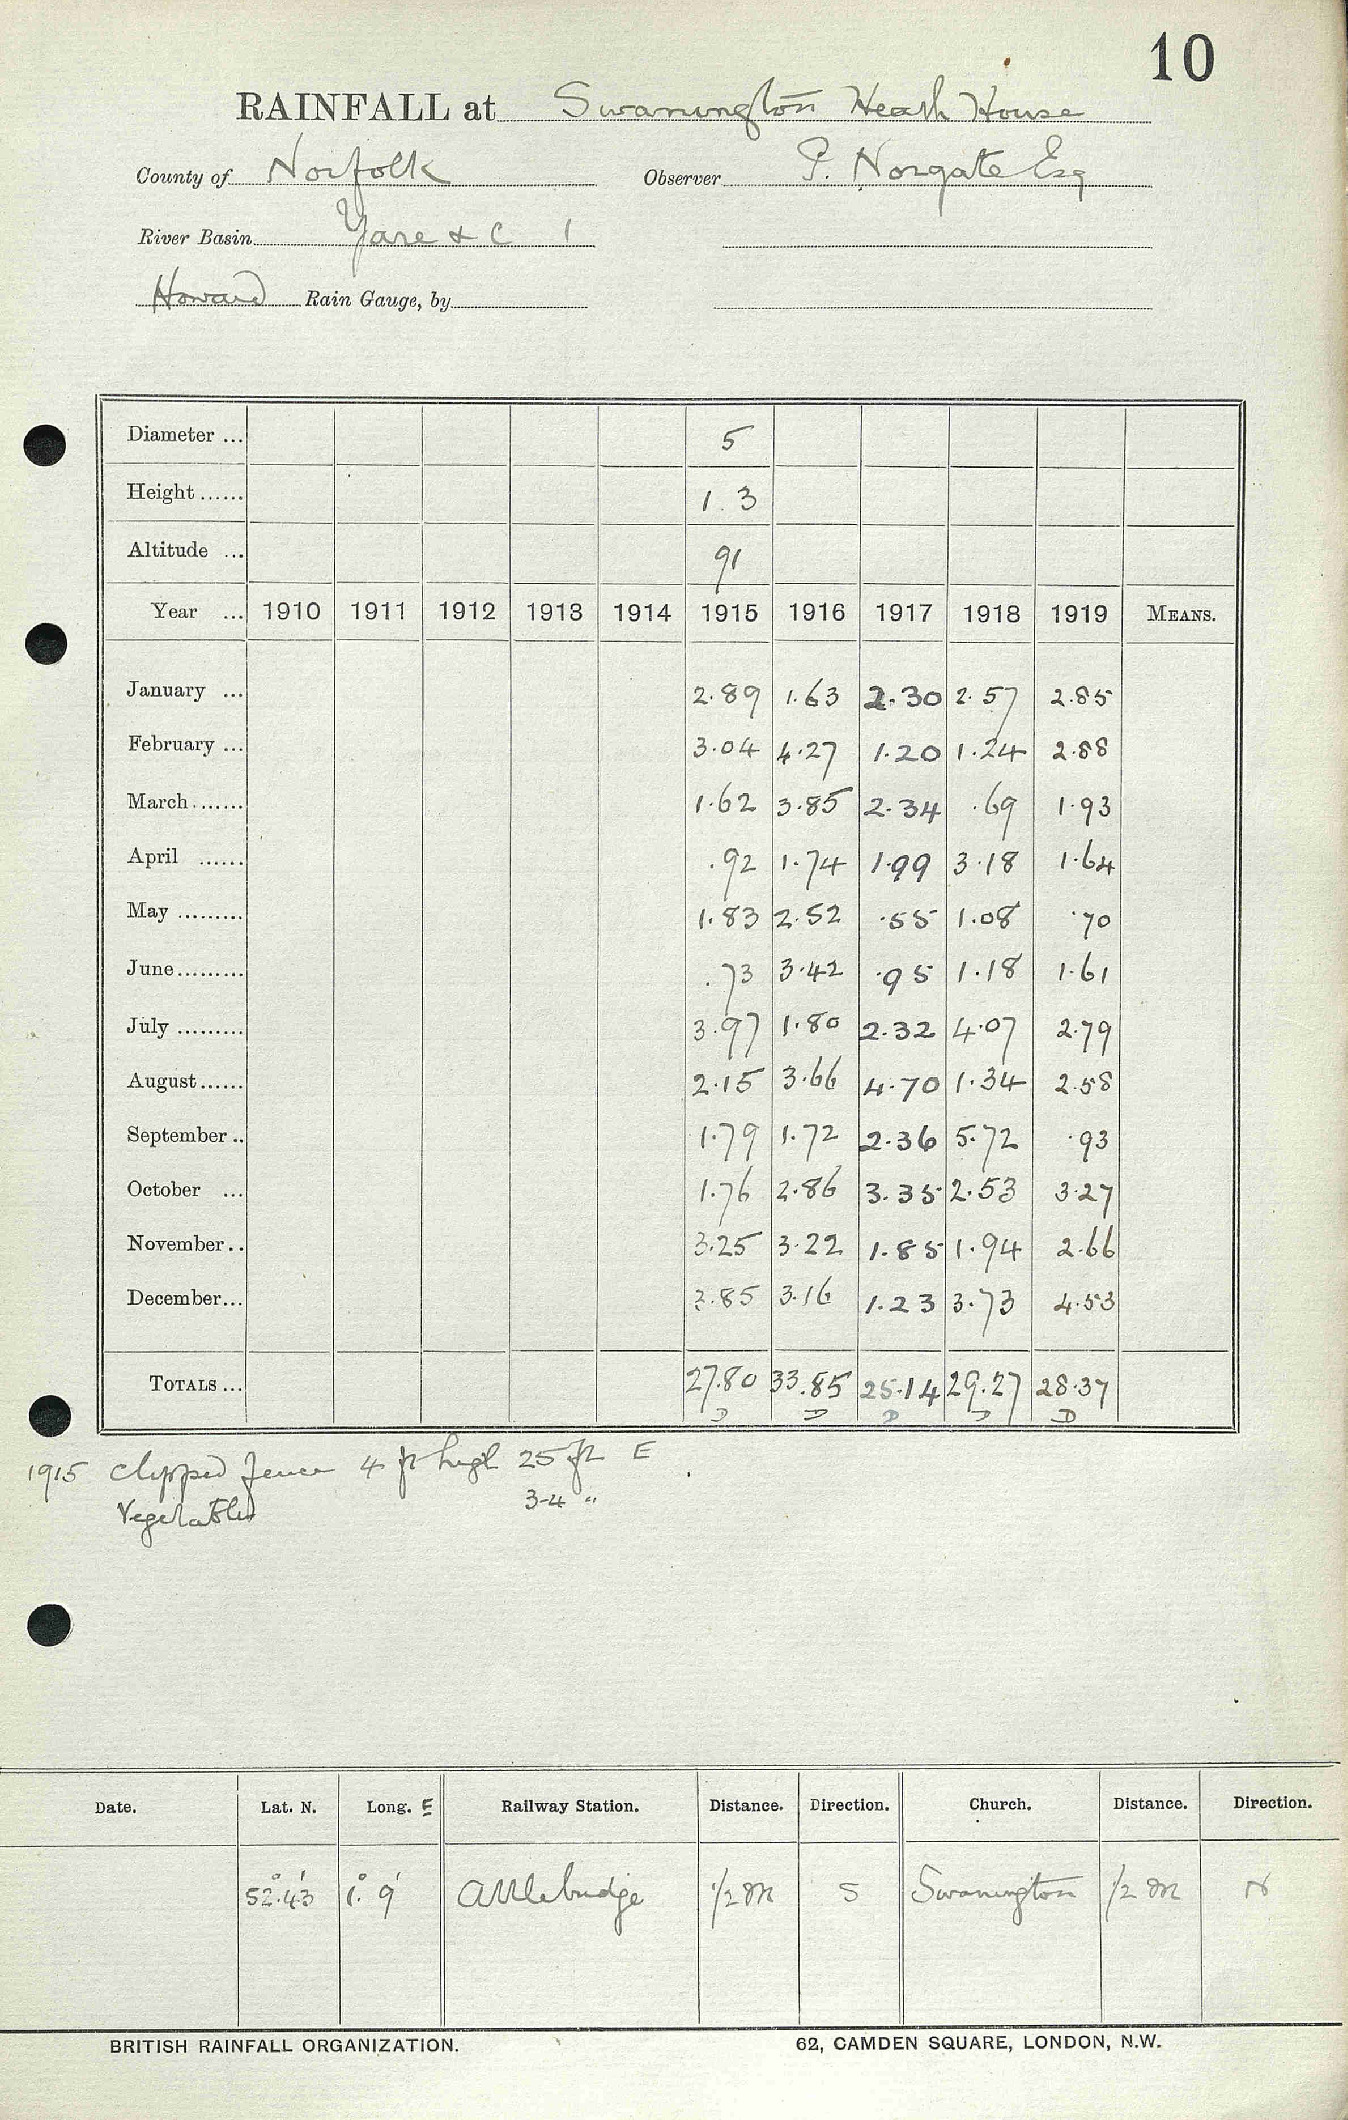 10
RAINFALL at Swannington Heath House
County of Norfolk Observer P. Norgate Esq
River Basin Yare & C 1
Howard Rain Gauge, by
Diameter ... 5
Height ...... 1. 3
Altitude ... 91
Year ... 1910 1911 1912 1913 1914 1915 1916 1917 1918 1919 MEANS.
January ... 2.89 1.63 2.30 2.57 2.85
February ... 3.04 4.27 1.20 1.24 2.88
March ...... 1.62 3.85 2.34 .69 1.93
April ...... .92 1.74 1.99 3.18 1.64
May ......... 1.83 2.52 .55 1.08 .70
June ......... .73 3.42 .95 1.18 1.61
July ......... 3.97 1.80 2.32 4.07 2.79
August ...... 2.15 3.66 4.70 1.34 2.58
September .. 1.79 1.72 2.36 5.72 .93
October ... 1.76 2.86 3.35 2.53 3.27
November .. 3.25 3.22 1.85 1.94 2.66
December ... 3.85 3.16 1.23 3.73 4.53
TOTALS ... 27.80 33.85 25.14 29.27 28.37
D D D D D
1915 Clipped fence 4 ft high 25 ft E
Vegetables 3-4 "
Date. Lat. N. Long. E Railway Station. Distance. Direction. Church. Distance. Direction.
52°.43' 1°. 9' Attlebridge 1/2 m S Swannington 1/2 m N
BRITISH RAINFALL ORGANIZATION. 62, CAMDEN SQUARE, LONDON, N.W.